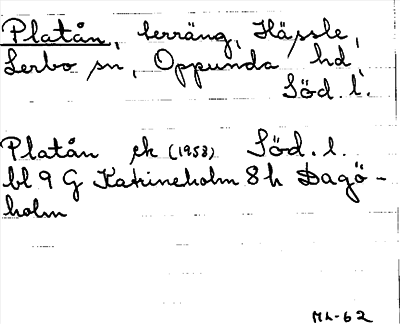 Platån, terräng, Hässle,
Lerbo sn, Oppunda hd,
Söd. l.
Platån ek (1953) Söd. l.
bl 9 G Katrineholm 8 h Dagö-
holm
ML-62